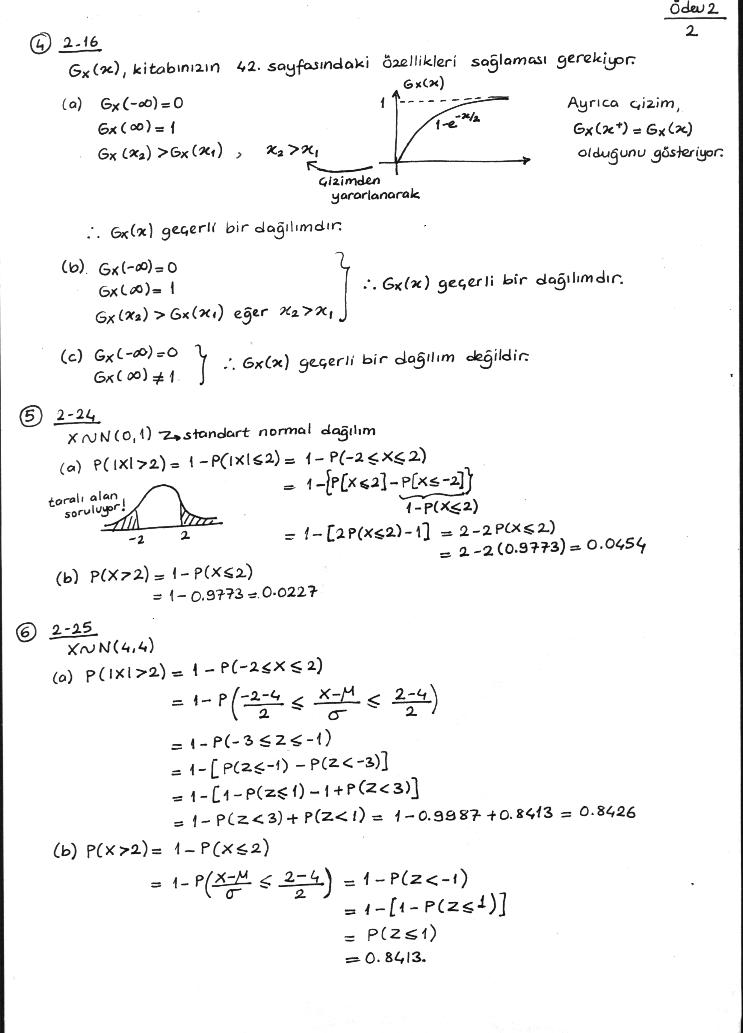 Ödev 2
2
④ 2-16
Gx(x), kitabınızın 42. sayfasındaki özellikleri sağlaması gerekiyor.
(a) Gx(-∞)=0
Gx(∞)=1
Gx(x₂)>Gx(x₁) , x₂>x₁
Çizimden
yararlanarak
Gx(x)
1
1-e^-x/2
Ayrıca çizim,
Gx(x⁺)=Gx(x)
olduğunu gösteriyor.
∴ Gx(x) geçerli bir dağılımdır.
(b) Gx(-∞)=0
Gx(∞)=1
Gx(x₂)>Gx(x₁) eğer x₂>x₁
∴ Gx(x) geçerli bir dağılımdır.
(c) Gx(-∞)=0
Gx(∞)≠1
∴ Gx(x) geçerli bir dağılım değildir.
⑤ 2-24
X~N(0,1) → standart normal dağılım
(a) P(|X|>2) = 1-P(|X|≤2) = 1-P(-2≤X≤2)
= 1-{P[X≤2]-P[X≤-2]}
1-P(X≤2)
= 1-[2P(X≤2)-1] = 2-2P(X≤2)
= 2-2(0.9773) = 0.0454
taralı alan
soruluyor!
-2 2
(b) P(X>2) = 1-P(X≤2)
= 1-0.9773 = 0.0227
⑥ 2-25
X~N(4,4)
(a) P(|X|>2) = 1-P(-2≤X≤2)
= 1-P((-2-4)/2 ≤ (X-μ)/σ ≤ (2-4)/2)
= 1-P(-3≤Z≤-1)
= 1-[P(Z≤-1)-P(Z<-3)]
= 1-[1-P(Z≤1)-1+P(Z<3)]
= 1-P(Z<3)+P(Z<1) = 1-0.9987+0.8413 = 0.8426
(b) P(X>2) = 1-P(X≤2)
= 1-P((X-μ)/σ ≤ (2-4)/2) = 1-P(Z<-1)
= 1-[1-P(Z≤1)]
= P(Z≤1)
= 0.8413.